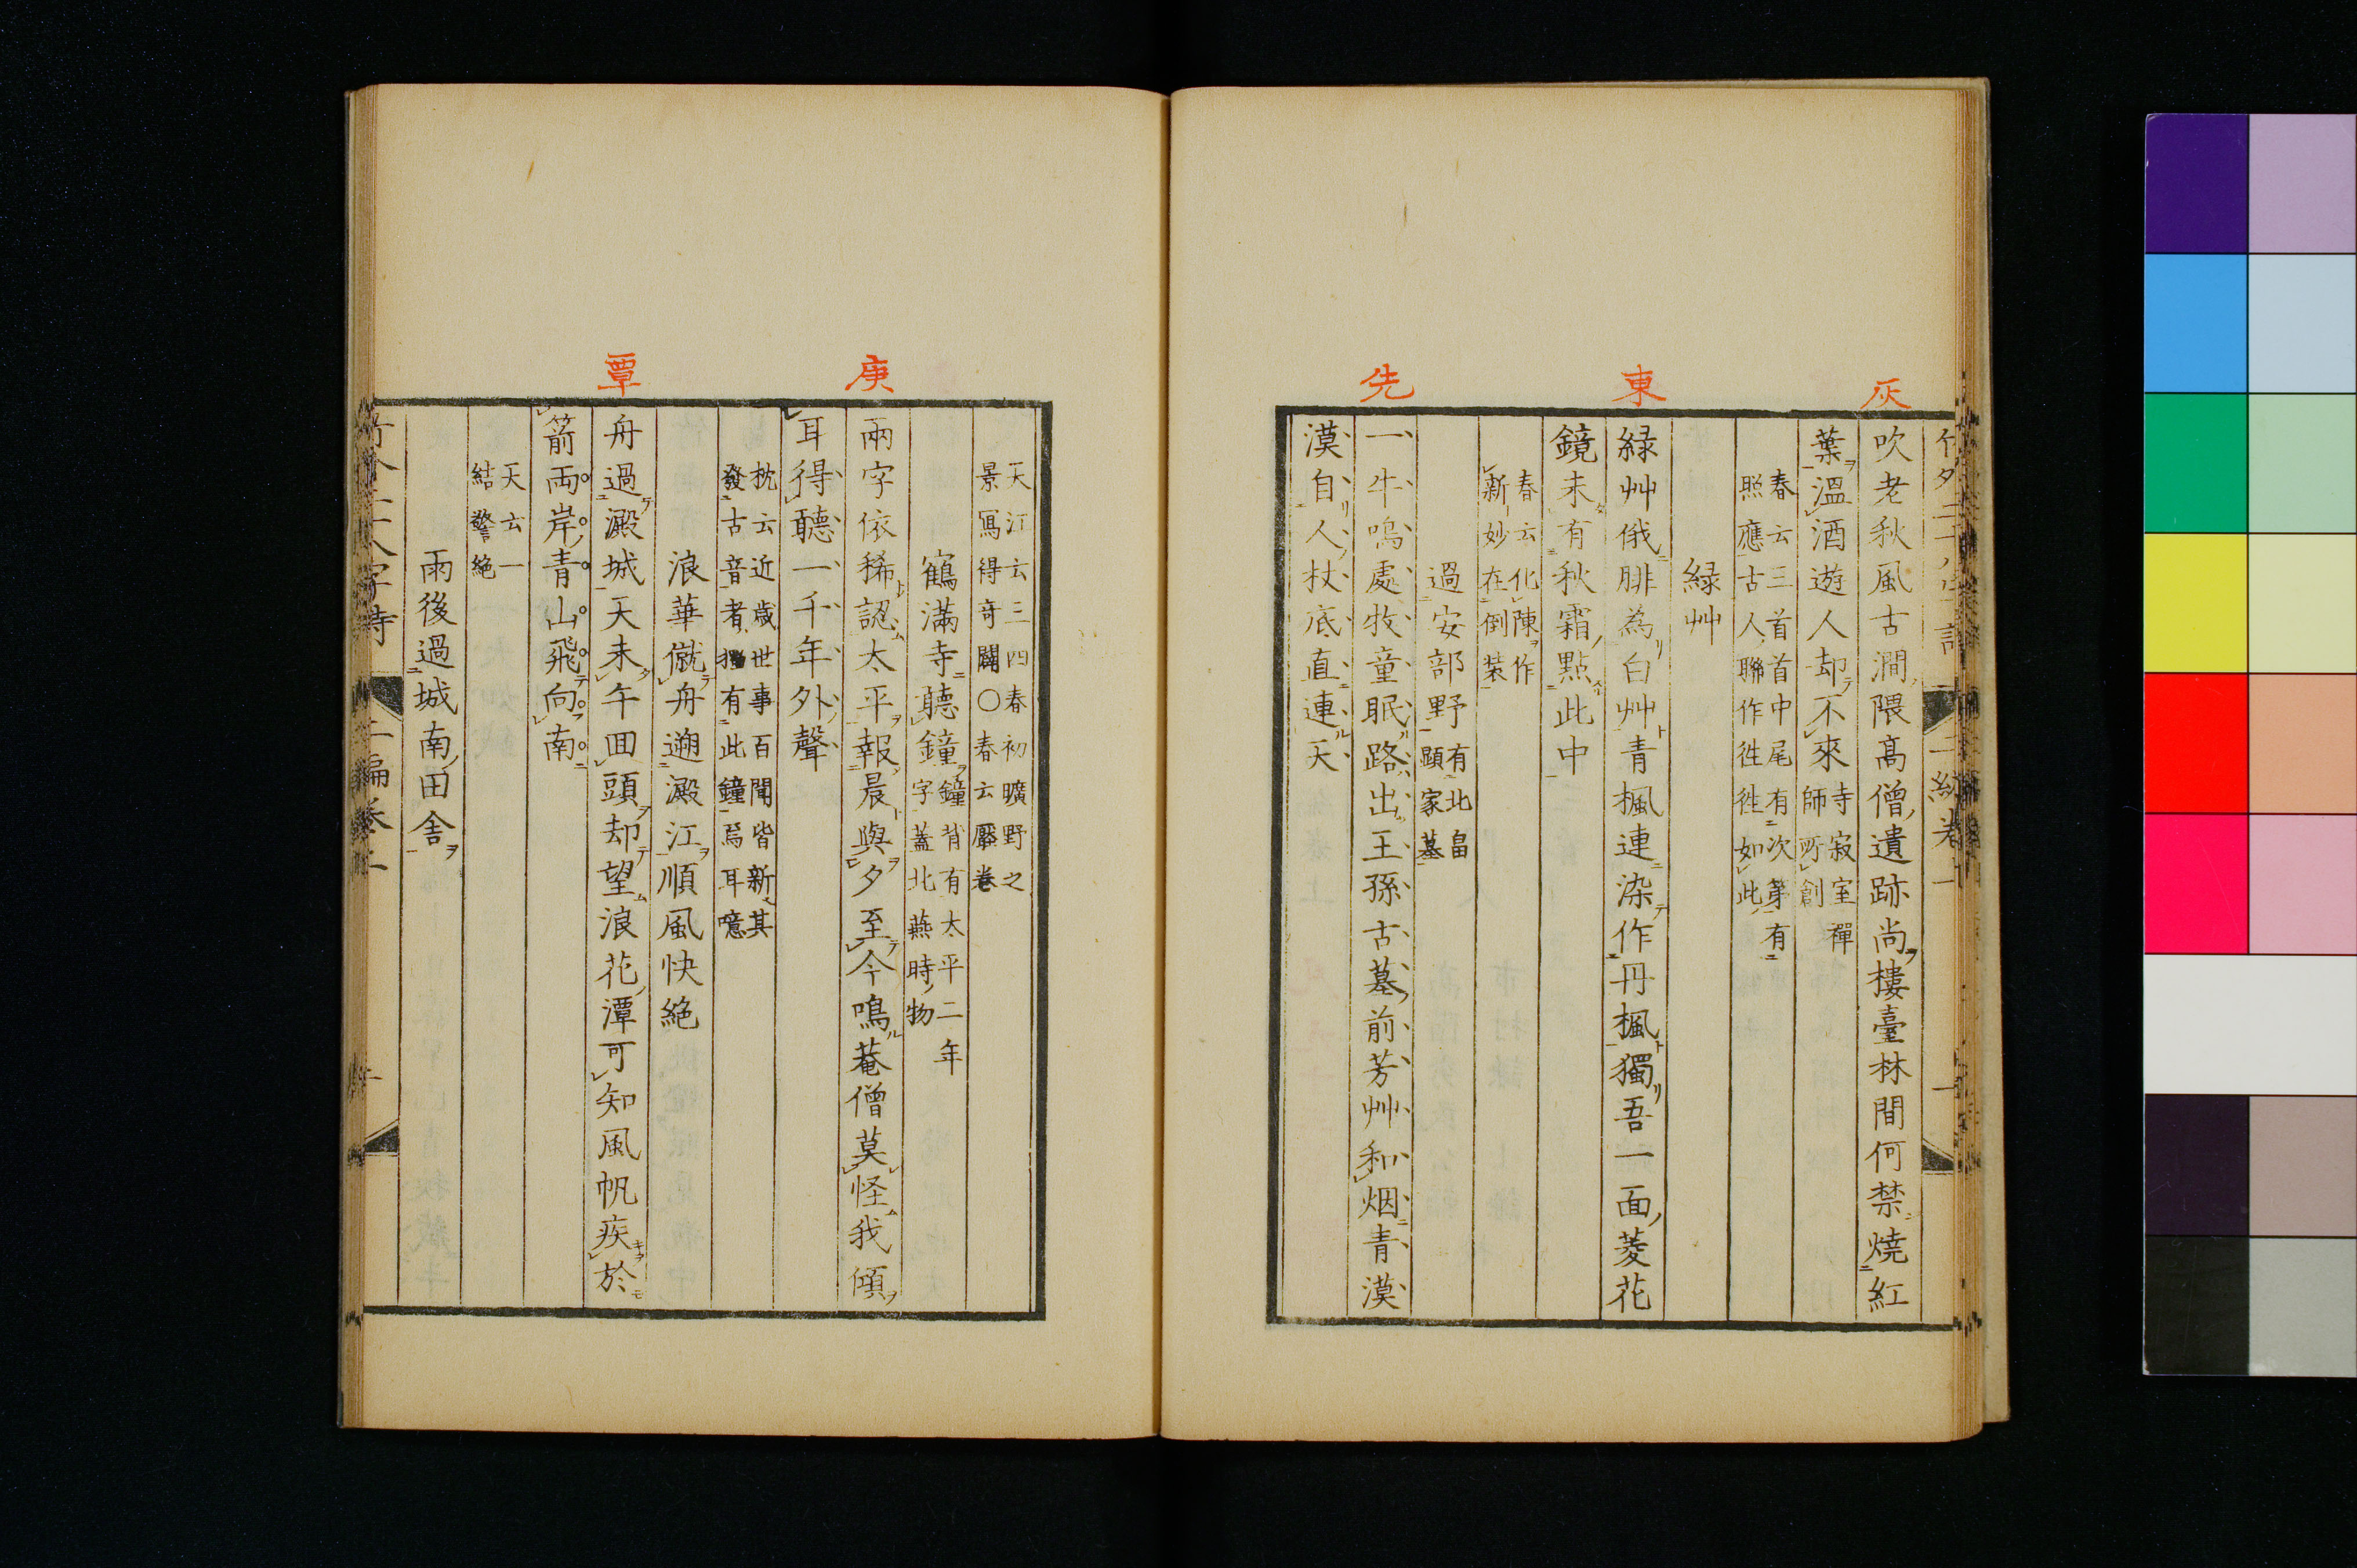 灰
東
先
吹老秋風古澗隈高僧遺跡尚樓臺林間何禁燒紅
葉溫酒遊人却不來寺寂室禪
師所創
春云三首首中尾有次第有
照應古人聯作徃徃如此
緑艸
緑艸俄腓為白艸青楓連染作丹楓獨吾一面菱花
鏡未有秋霜點此中
春云化陳作
新妙在倒裝
過安部野有北畠
顕家墓
一牛鳴處牧童眠路出王孫古墓前芳艸和烟青漠
漠自人杖底直連天
庚
覃
天江云三四春初曠野之
景冩得竒闢〇春云壓卷
鶴滿寺聽鐘鐘背有太平二年
字蓋北燕時物
兩字依稀認太平報晨與夕至今鳴菴僧莫怪我傾
耳得聽一千年外聲
枕云近歳世事百聞皆新其
發古音者獨有此鐘焉耳噫
浪華僦舟遡澱江順風快絶
舟過澱城天未午回頭却望浪花潭可知風帆疾於
箭両岸青山飛向南
天云一
結警絶
雨後過城南田舎
二編卷一